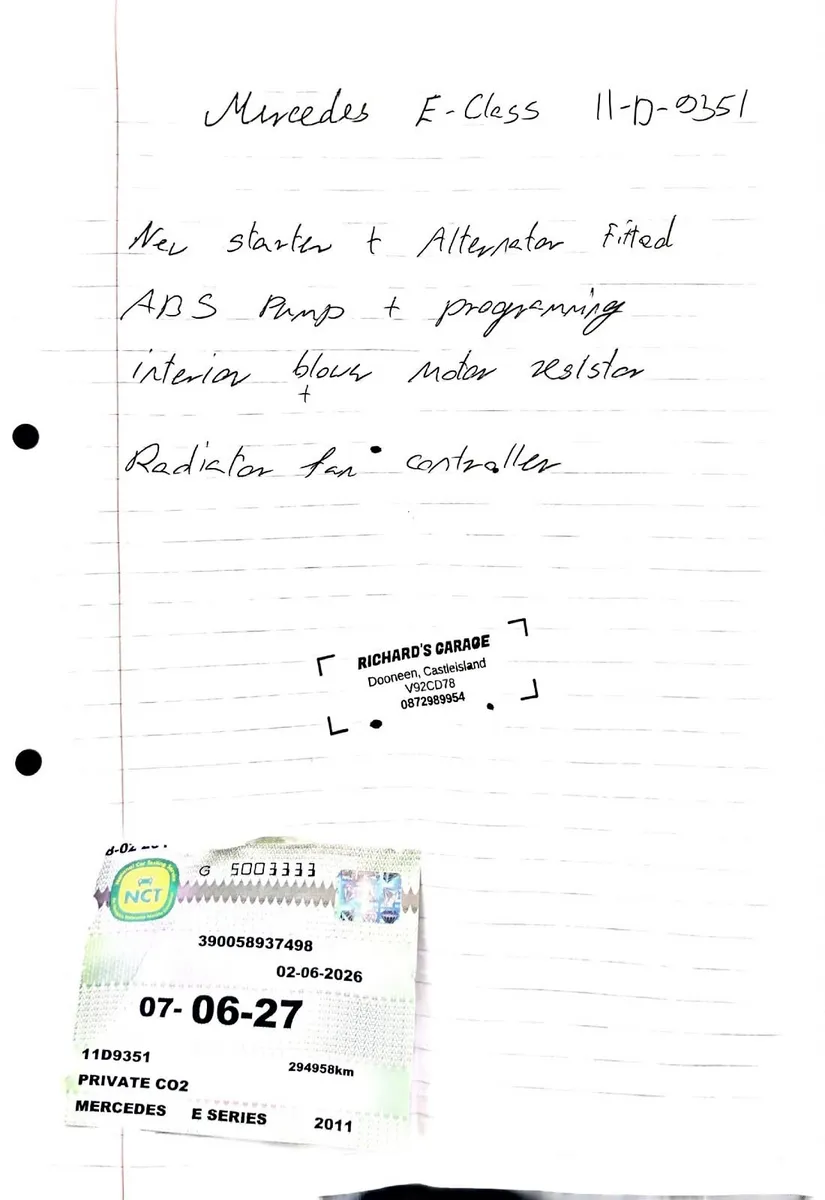 Mercedes E-Class 11-D-9351
New starter + Alternator Fitted
ABS Pump + programming
interior blower motor resistor
+
Radiator fan controller
RICHARD'S GARAGE
Dooneen, Castleisland
V92CD78
0872989954
G 5003333
NCT
390058937498
02-06-2026
07-06-27
11D9351
294958km
PRIVATE CO2
MERCEDES E SERIES 2011